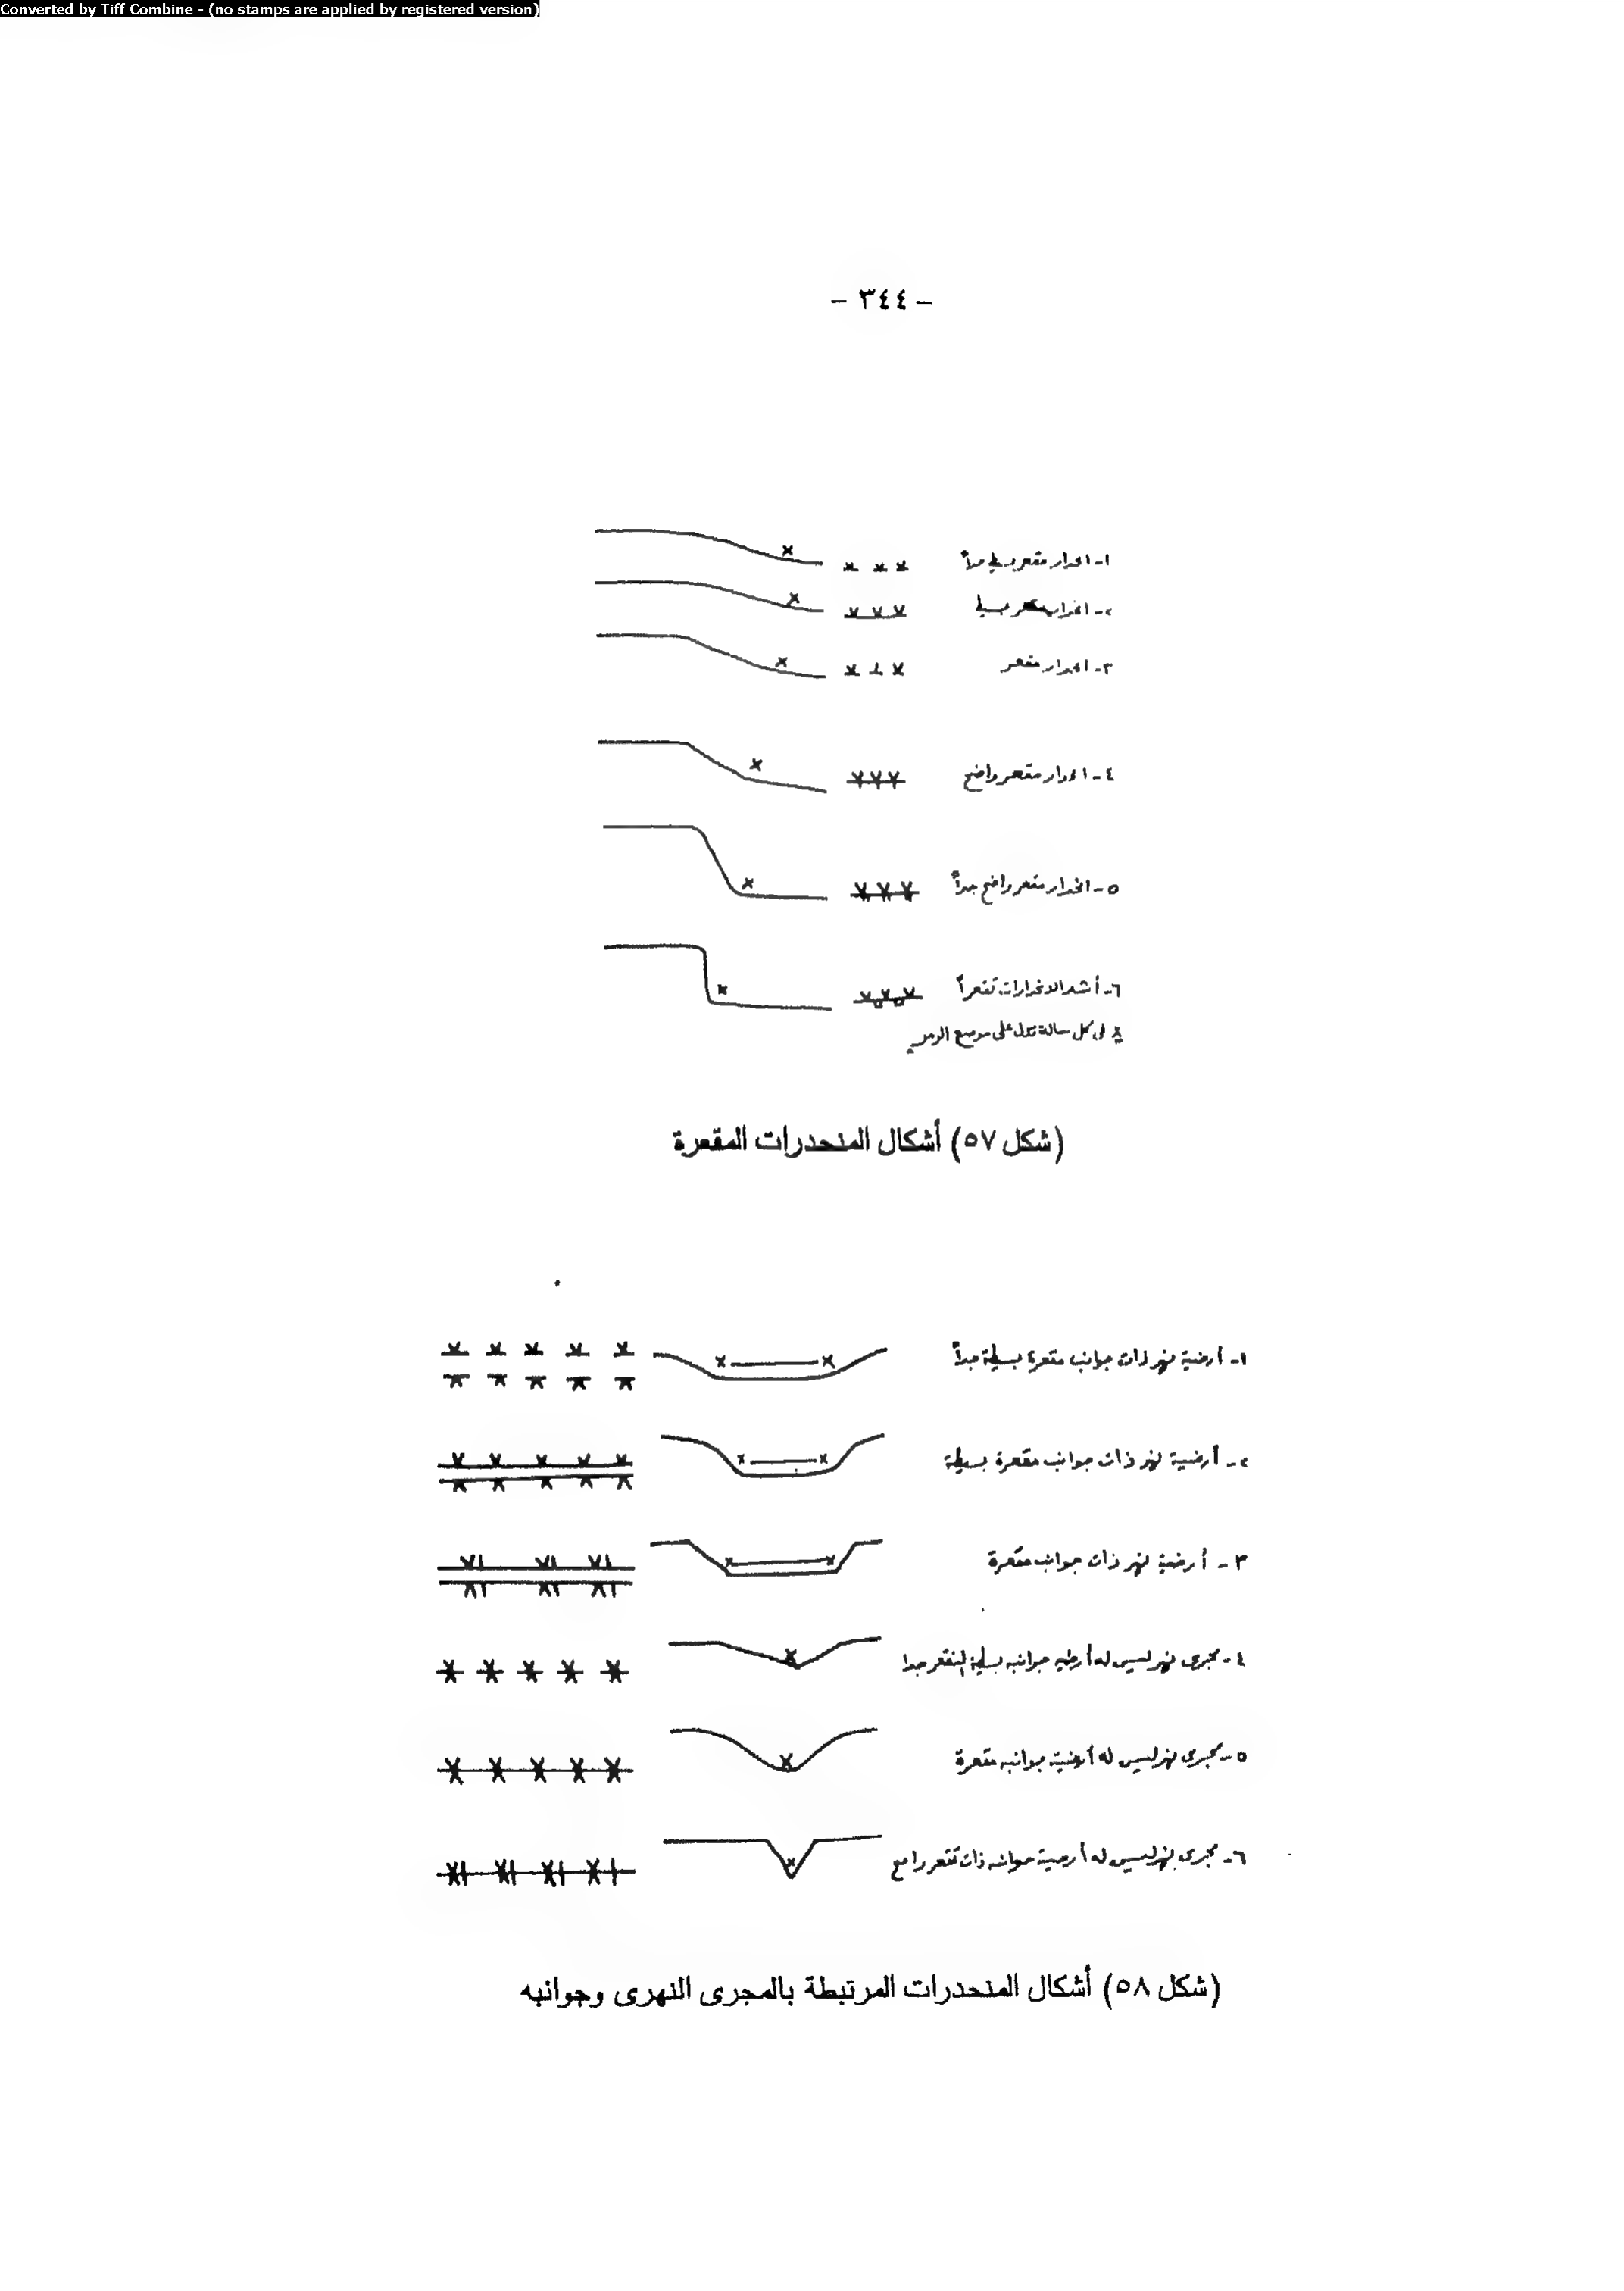 Converted by Tiff Combine - (no stamps are applied by registered version)
- ٣٤٤ -
١- انحدار مقعر بسيط جداً
٢- انحدار مقعر بسيط
٣- انحدار مقعر
٤- انحدار مقعر واضح
٥- انحدار مقعر واضح جداً
٦- أشد الانحدارات تقعراً
x فى كل حالة تدل على موضع الرمز
(شكل ٥٧) أشكال المنحدرات المقعرة
١- أرضية نهر ذات جوانب مقعرة بسيطة جداً
٢- أرضية نهر ذات جوانب مقعرة بسيطة
٣- أرضية نهر ذات جوانب مقعرة
٤- مجرى نهر ليس له أرضية جوانبه بسيطة التقعر جدا
٥- مجرى نهر ليس له أرضية جوانبه مقعرة
٦- مجرى نهر ليس له أرضية جوانبه ذات تقعر واضح
(شكل ٥٨) أشكال المنحدرات المرتبطة بالمجرى النهرى وجوانبه